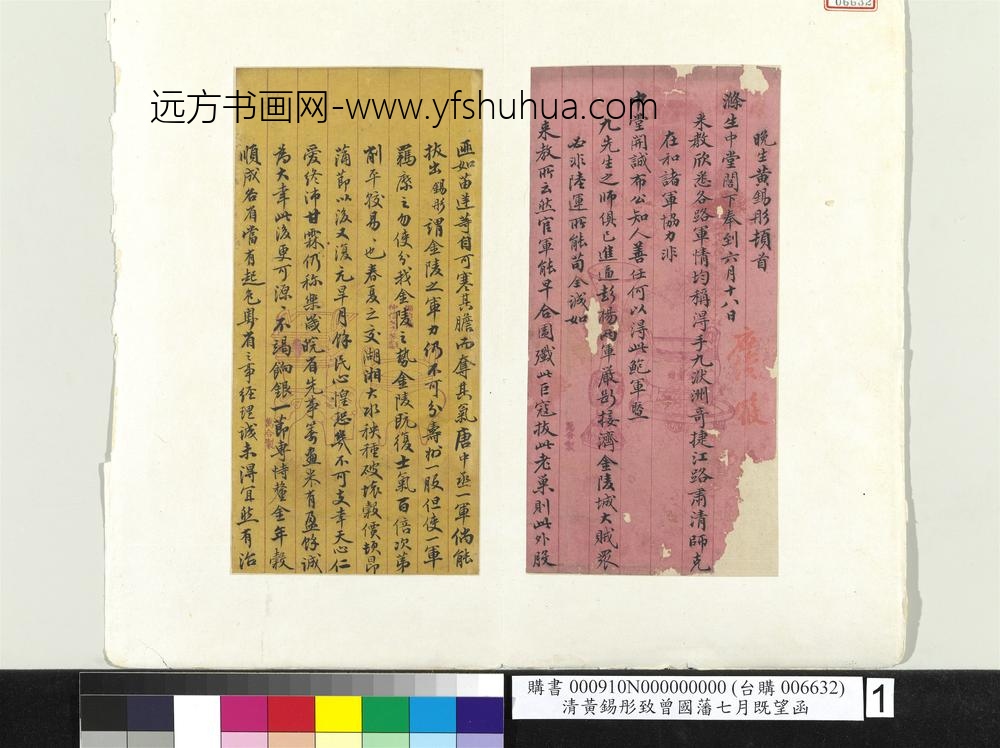 006632
远方书画网-www.yfshuhua.com
晚生黃錫彤頓首
滌生中堂閣下奉到六月十八日
來教欣悉各路軍情均稱得手九洑洲奇捷江路肅清師克
在和諸軍協力非
中堂開誠布公知人善任何以得此鮑軍暨
九先生之師俱已進逼彭楊兩軍嚴斷接濟金陵城大賊眾
必非陸運所能苟全誠如
來教所云然官軍能早合圍殲此巨寇拔此老巢則此外股
匪如苗逆等自可寒其膽而奪其氣唐中丞一軍倘能
拔出錫彤謂金陵之軍力仍不可分壽州一股但使一軍
羈縻之勿使分我金陵之勢金陵既復士氣百倍次第
削平較易易也春夏之交湖湘大水秧種破壞穀價頓昂
蒲節以後又復亢旱月餘民心惶恐幾不可支幸天心仁
愛終沛甘霖仍稱樂歲皖省先事籌畫米有盈餘誠
為大幸此後更可源源不竭餉銀一節專恃釐金年穀
順成各省當有起色粵省之事經理誠未得宜然有治
購書 000910N000000000 (台購 006632)
清黃錫彤致曾國藩七月既望函
1